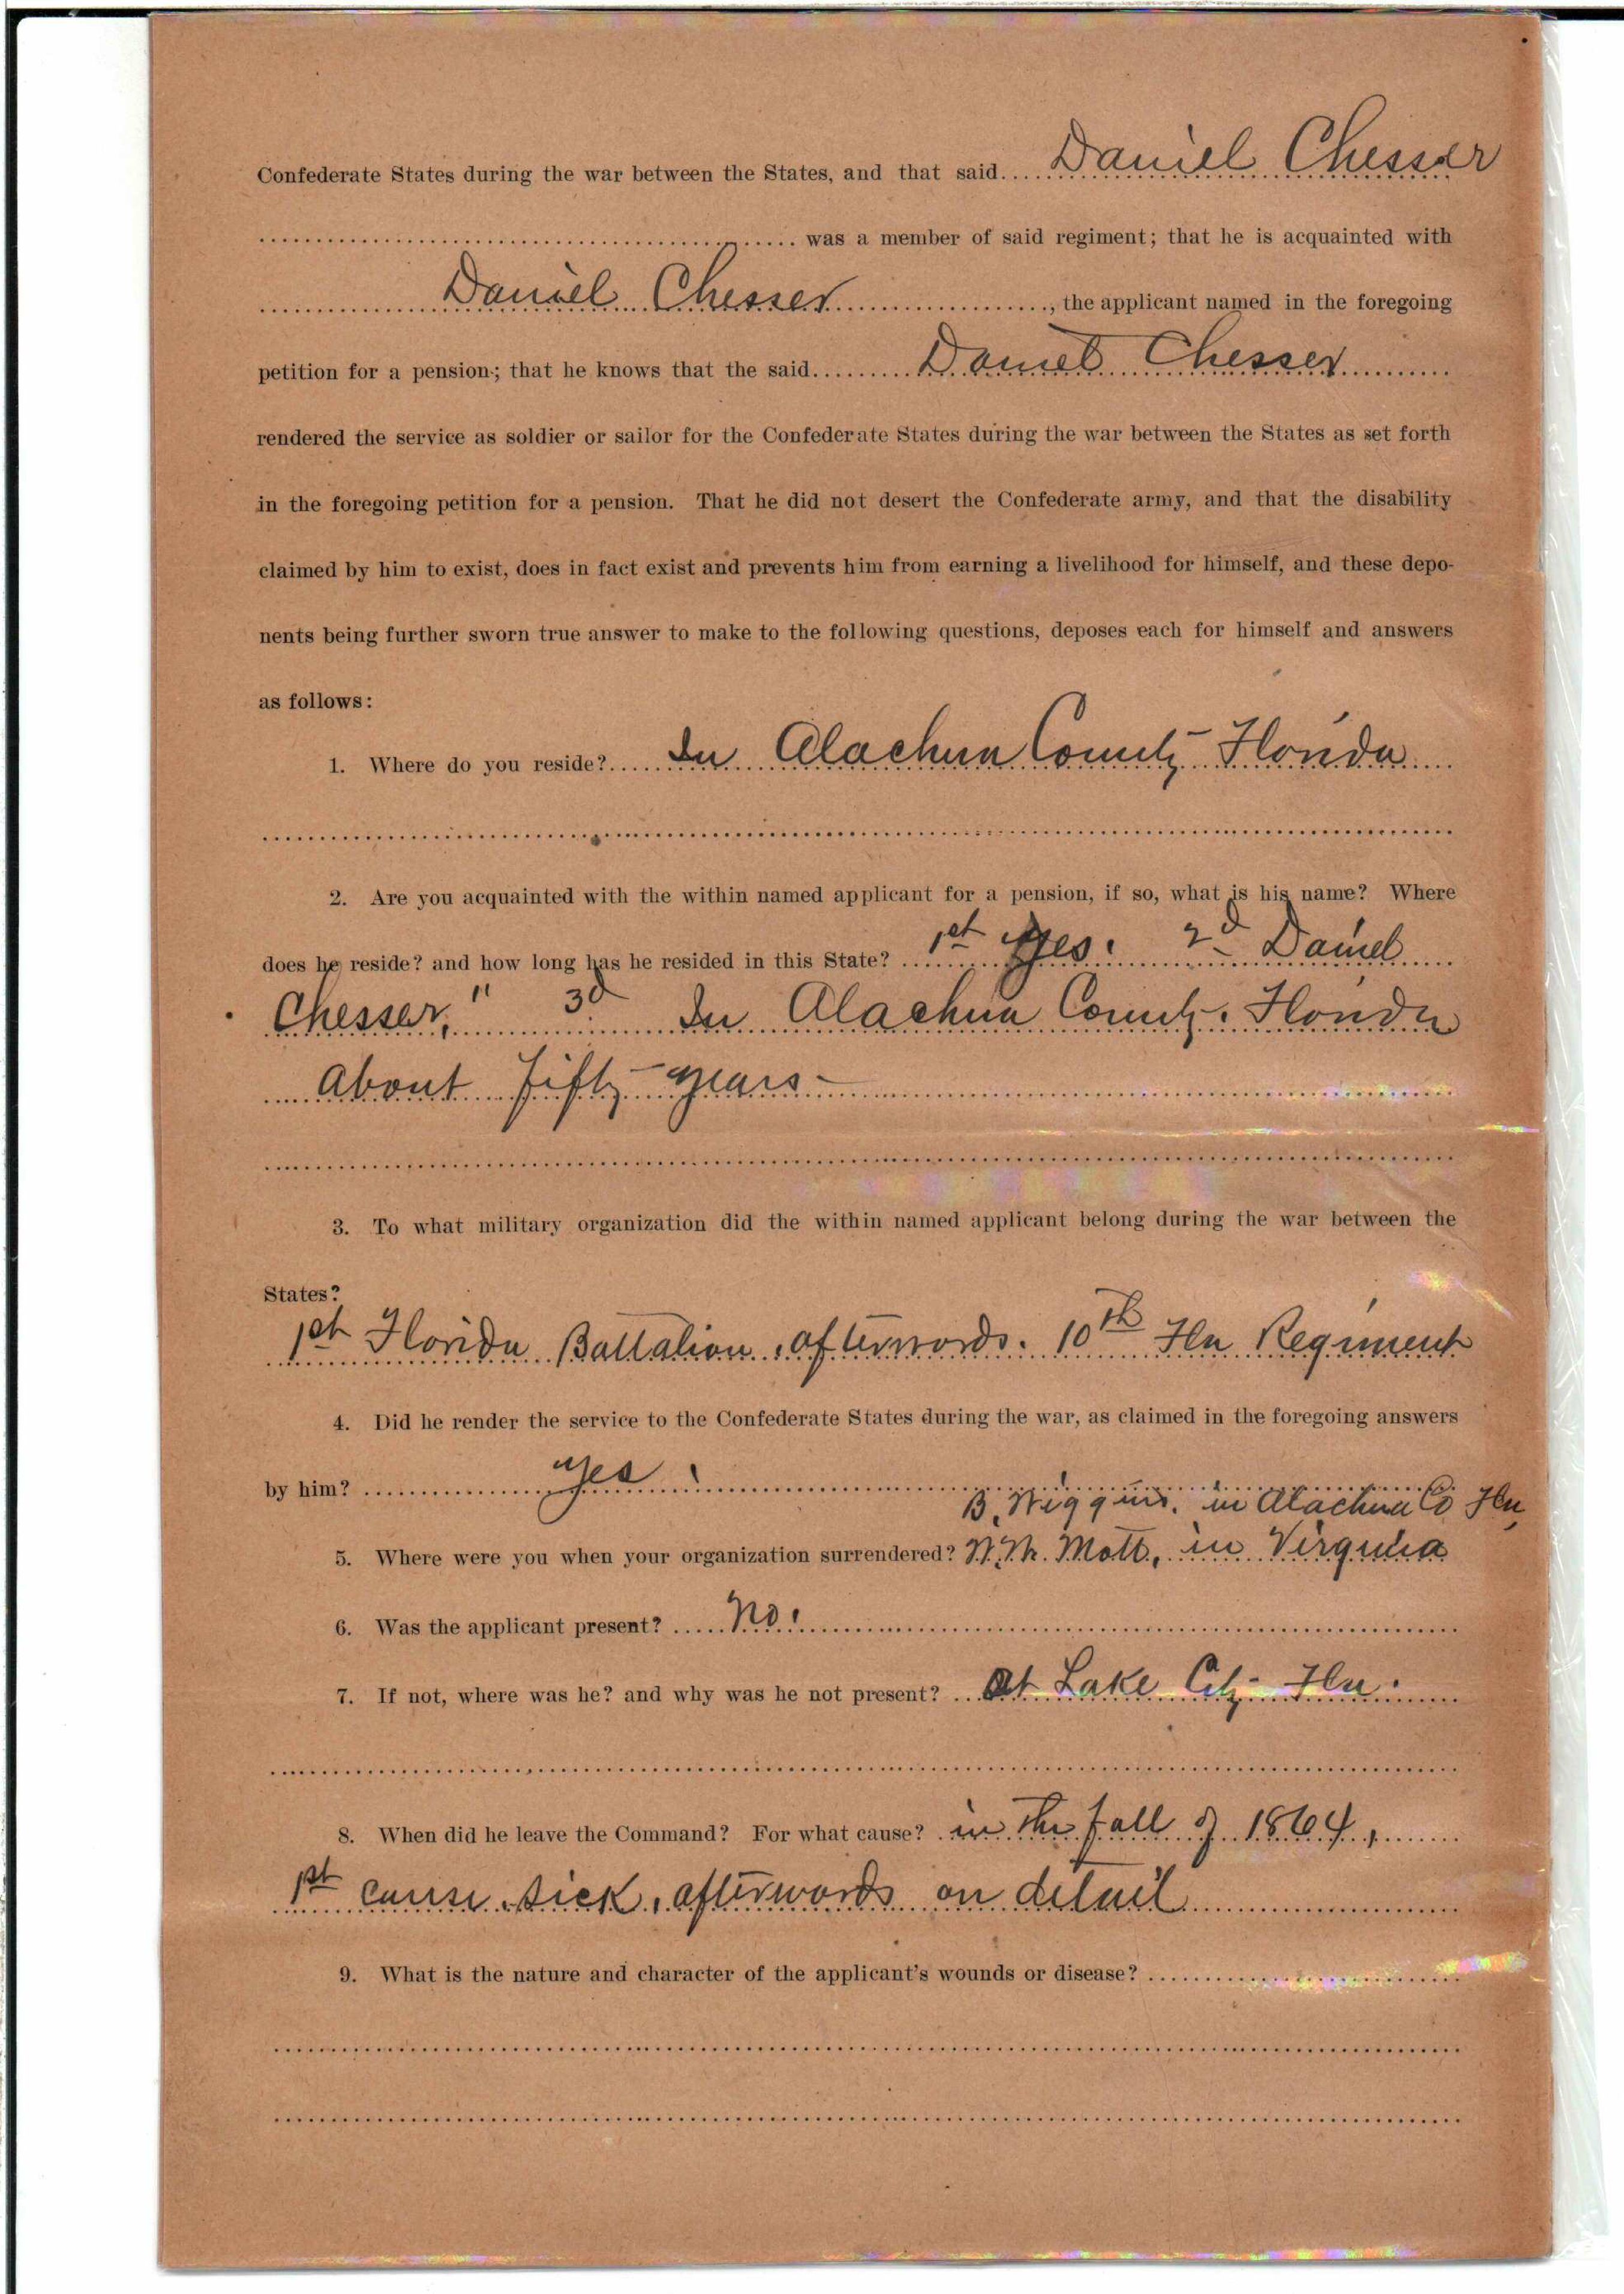 Confederate States during the war between the States, and that said Daniel Chesser
was a member of said regiment; that he is acquainted with
Daniel Chesser, the applicant named in the foregoing
petition for a pension; that he knows that the said Daniel Chesser
rendered the service as soldier or sailor for the Confederate States during the war between the States as set forth
in the foregoing petition for a pension. That he did not desert the Confederate army, and that the disability
claimed by him to exist, does in fact exist and prevents him from earning a livelihood for himself, and these depo-
nents being further sworn true answer to make to the following questions, deposes each for himself and answers
as follows:
1. Where do you reside? In Alachua County Florida
2. Are you acquainted with the within named applicant for a pension, if so, what is his name? Where
does he reside? and how long has he resided in this State? 1st Yes. 2d Daniel
Chesser," 3d In Alachua County. Florida
About fifty years
3. To what military organization did the within named applicant belong during the war between the
States?
1st Florida Battalion, afterwords. 10th Fla Regiment
4. Did he render the service to the Confederate States during the war, as claimed in the foregoing answers
by him? yes.
B. Wiggins. in Alachua Co Fla,
5. Where were you when your organization surrendered? Mott, in Virginia
6. Was the applicant present? No.
7. If not, where was he? and why was he not present? At Lake City Fla.
8. When did he leave the Command? For what cause? in the fall of 1864,
1st cause sick, afterwords on detail
9. What is the nature and character of the applicant's wounds or disease?